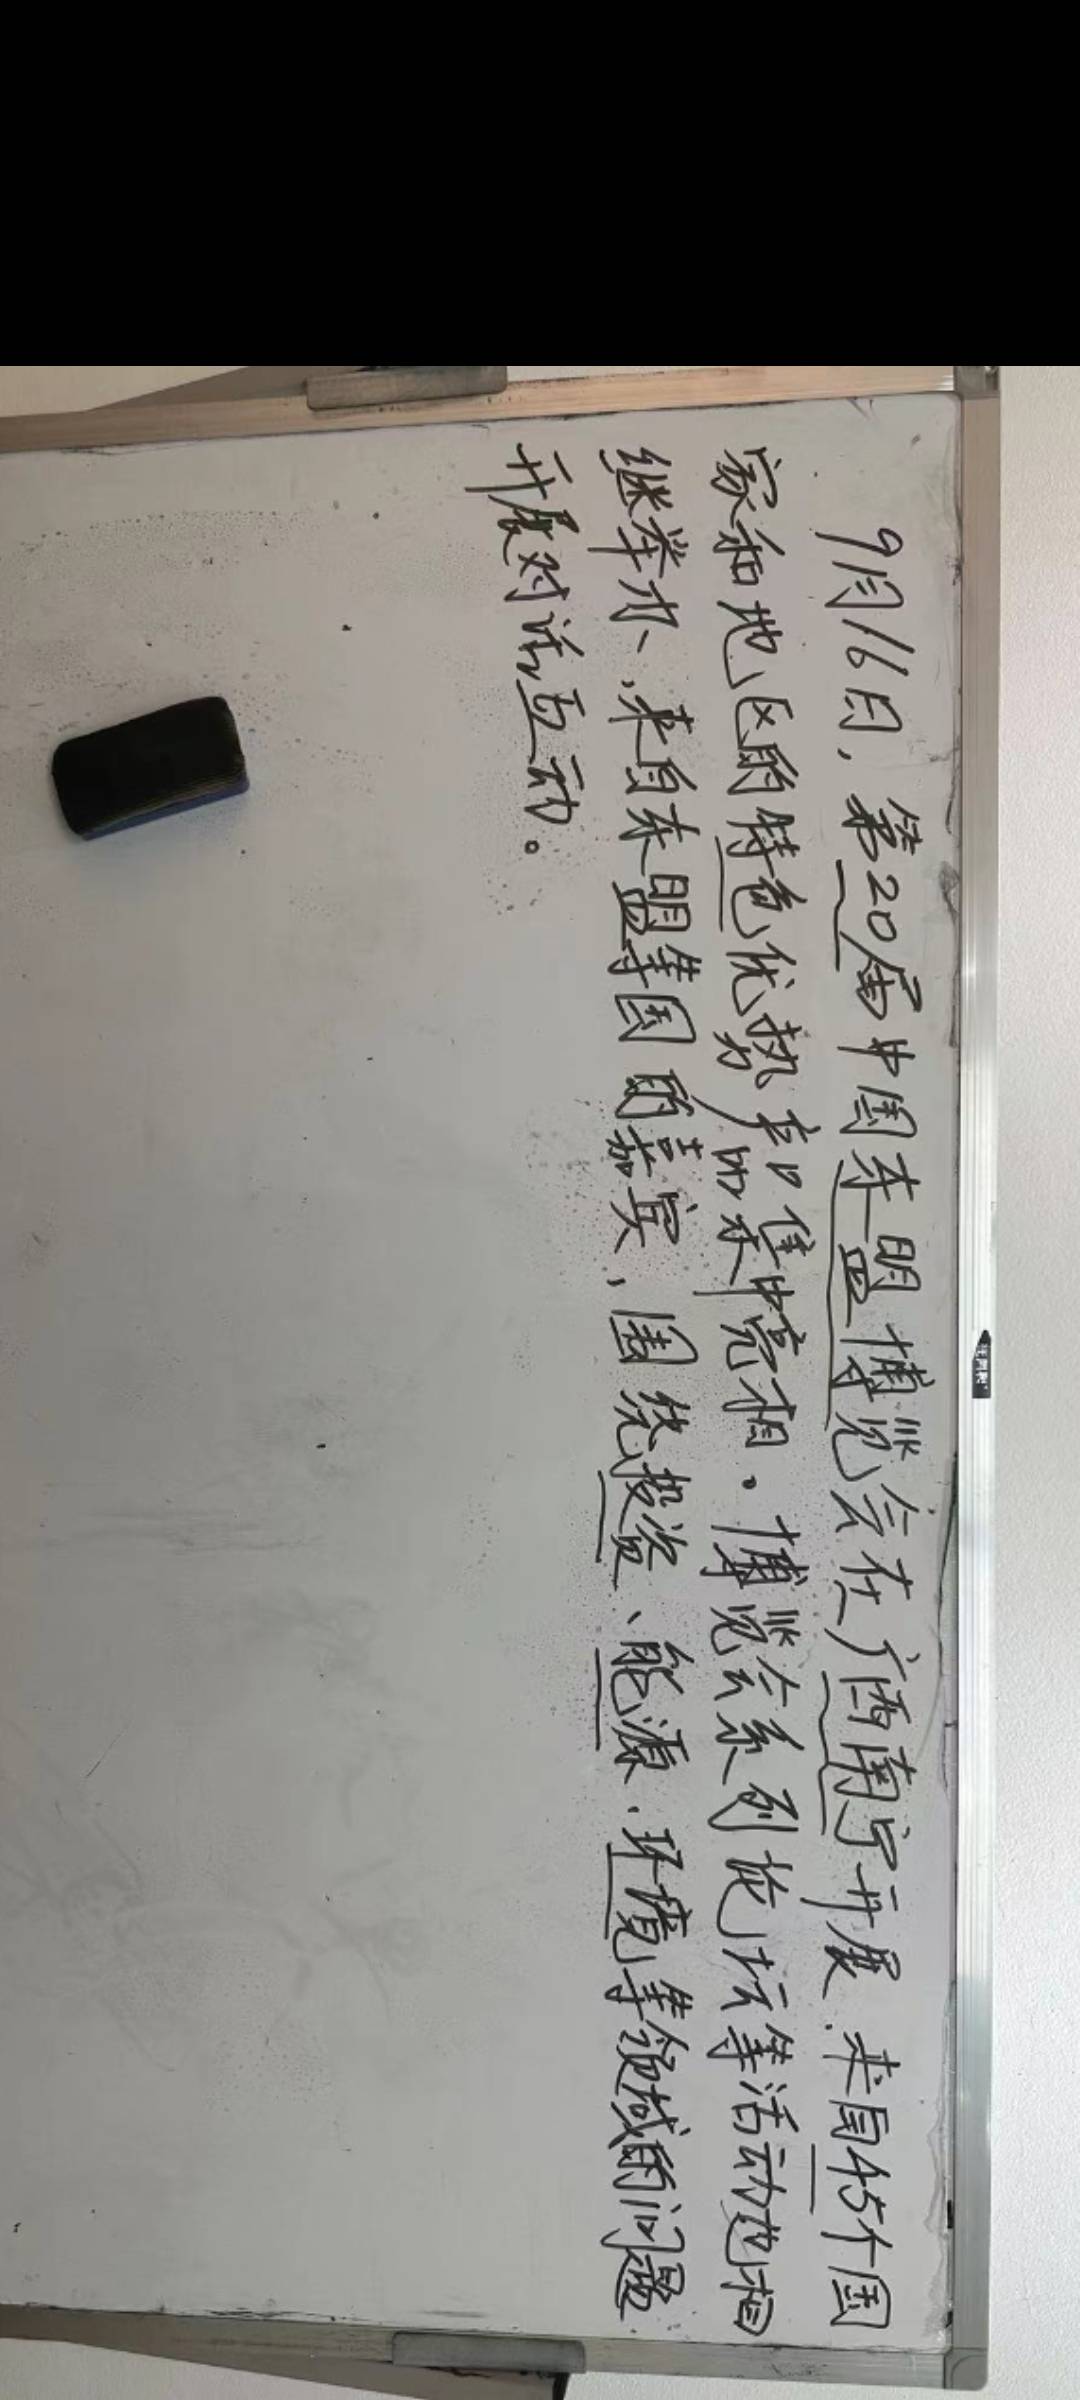 9月16日，第20届中国东盟博览会在广西南宁开展.来自45个国
家和地区的特色优势产品来集中亮相。博览会系列论坛等活动也相
继举办、来自东盟等国的嘉宾，围绕投资、能源.环境等领域的问题
开展对话互动。